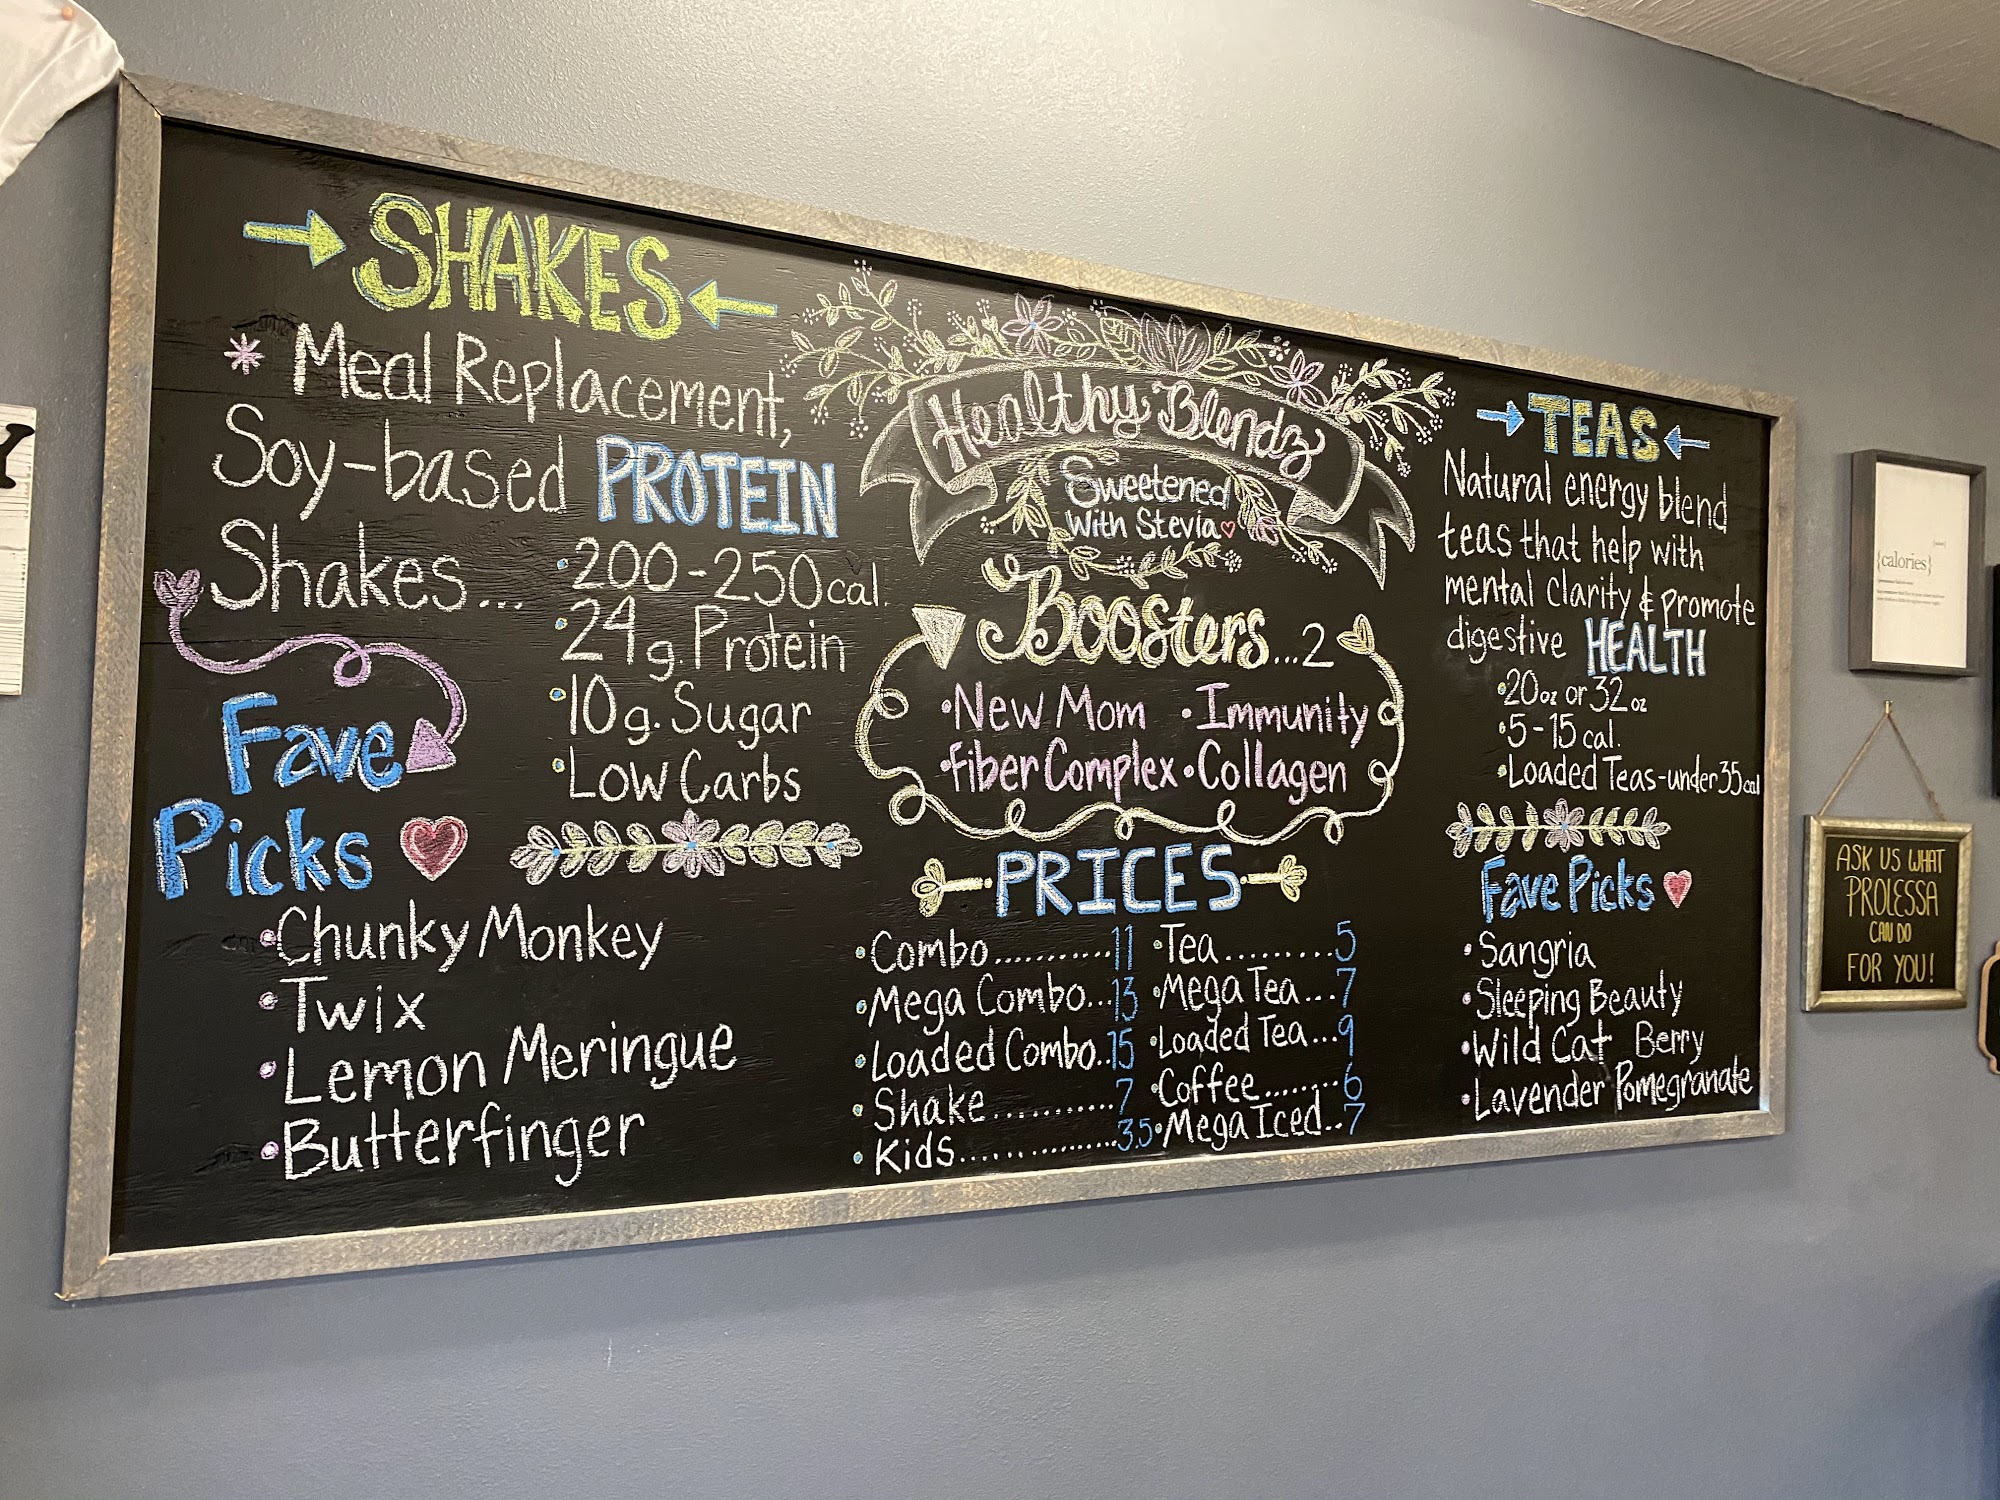 SHAKES
* Meal Replacement,
Soy-based PROTEIN
Shakes...
•200-250 cal.
•24g. Protein
•10g. Sugar
•Low Carbs
Fave
Picks
•Chunky Monkey
•Twix
•Lemon Meringue
•Butterfinger
Healthy Blendz
Sweetened
With Stevia
Boosters...2
•New Mom •Immunity
•Fiber Complex •Collagen
PRICES
•Combo...........11
•Mega Combo...13
•Loaded Combo..15
•Shake...........7
•Kids..............3.5
•Tea.........5
•Mega Tea...7
•Loaded Tea...9
•Coffee.......6
•Mega Iced..7
TEAS
Natural energy blend
teas that help with
mental clarity & promote
digestive HEALTH
•20oz or 32oz
•5-15 cal.
•Loaded Teas-under 35cal
Fave Picks
•Sangria
•Sleeping Beauty
•Wild Cat Berry
•Lavender Pomegranate
{calories}
ASK US WHAT
PROLESSA
CAN DO
FOR YOU!